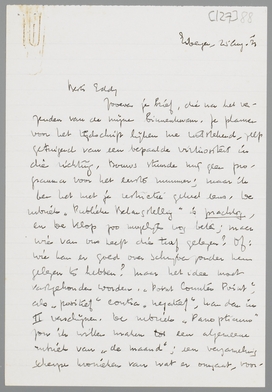 [(27)] 88
Beste Eddy,
Zooeven je brief, die na het ver-
zenden van de mijne binnenkwam. Je plannen
voor het tijdschrift lijken me uitstekend, zelfs
getuigend van een bepaalde virtuositeit in
die richting. Bouws stuurde mij geen pro-
gramma voor het eerste nummer; maar ik
ben het met je restrictie geheel eens. De
rubriek „Publieke Belangstelling" is prachtig,
en de klap zoo mogelijk nog beter; maar
wie van ons heeft die tijd gelezen? Of:
wie kan er goed over schrijven zonder hem
gelezen te hebben? Maar het idee moet
vastgehouden worden. „Point Contre Point"
als „positief" contra „negatief", kan dan in
II verschijnen. De rubriek „Panopticum"
zou ik willen maken tot een algemeene
rubriek van „de maand"; een verzameling
scherpe kronieken van wat er omgaat, voor-